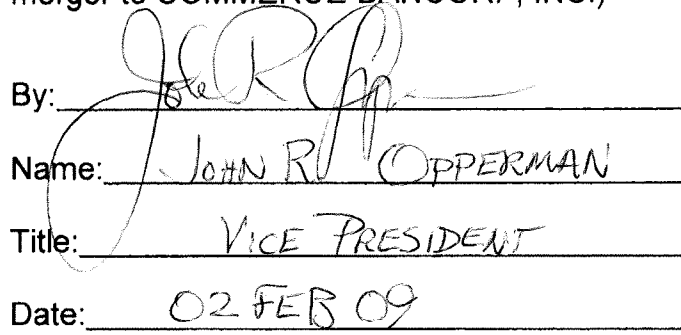 merger to COMMERCE BANCORP, INC.)
By: John R Opp
Name: JOHN R OPPERMAN
Title: VICE PRESIDENT
Date: 02 FEB 09